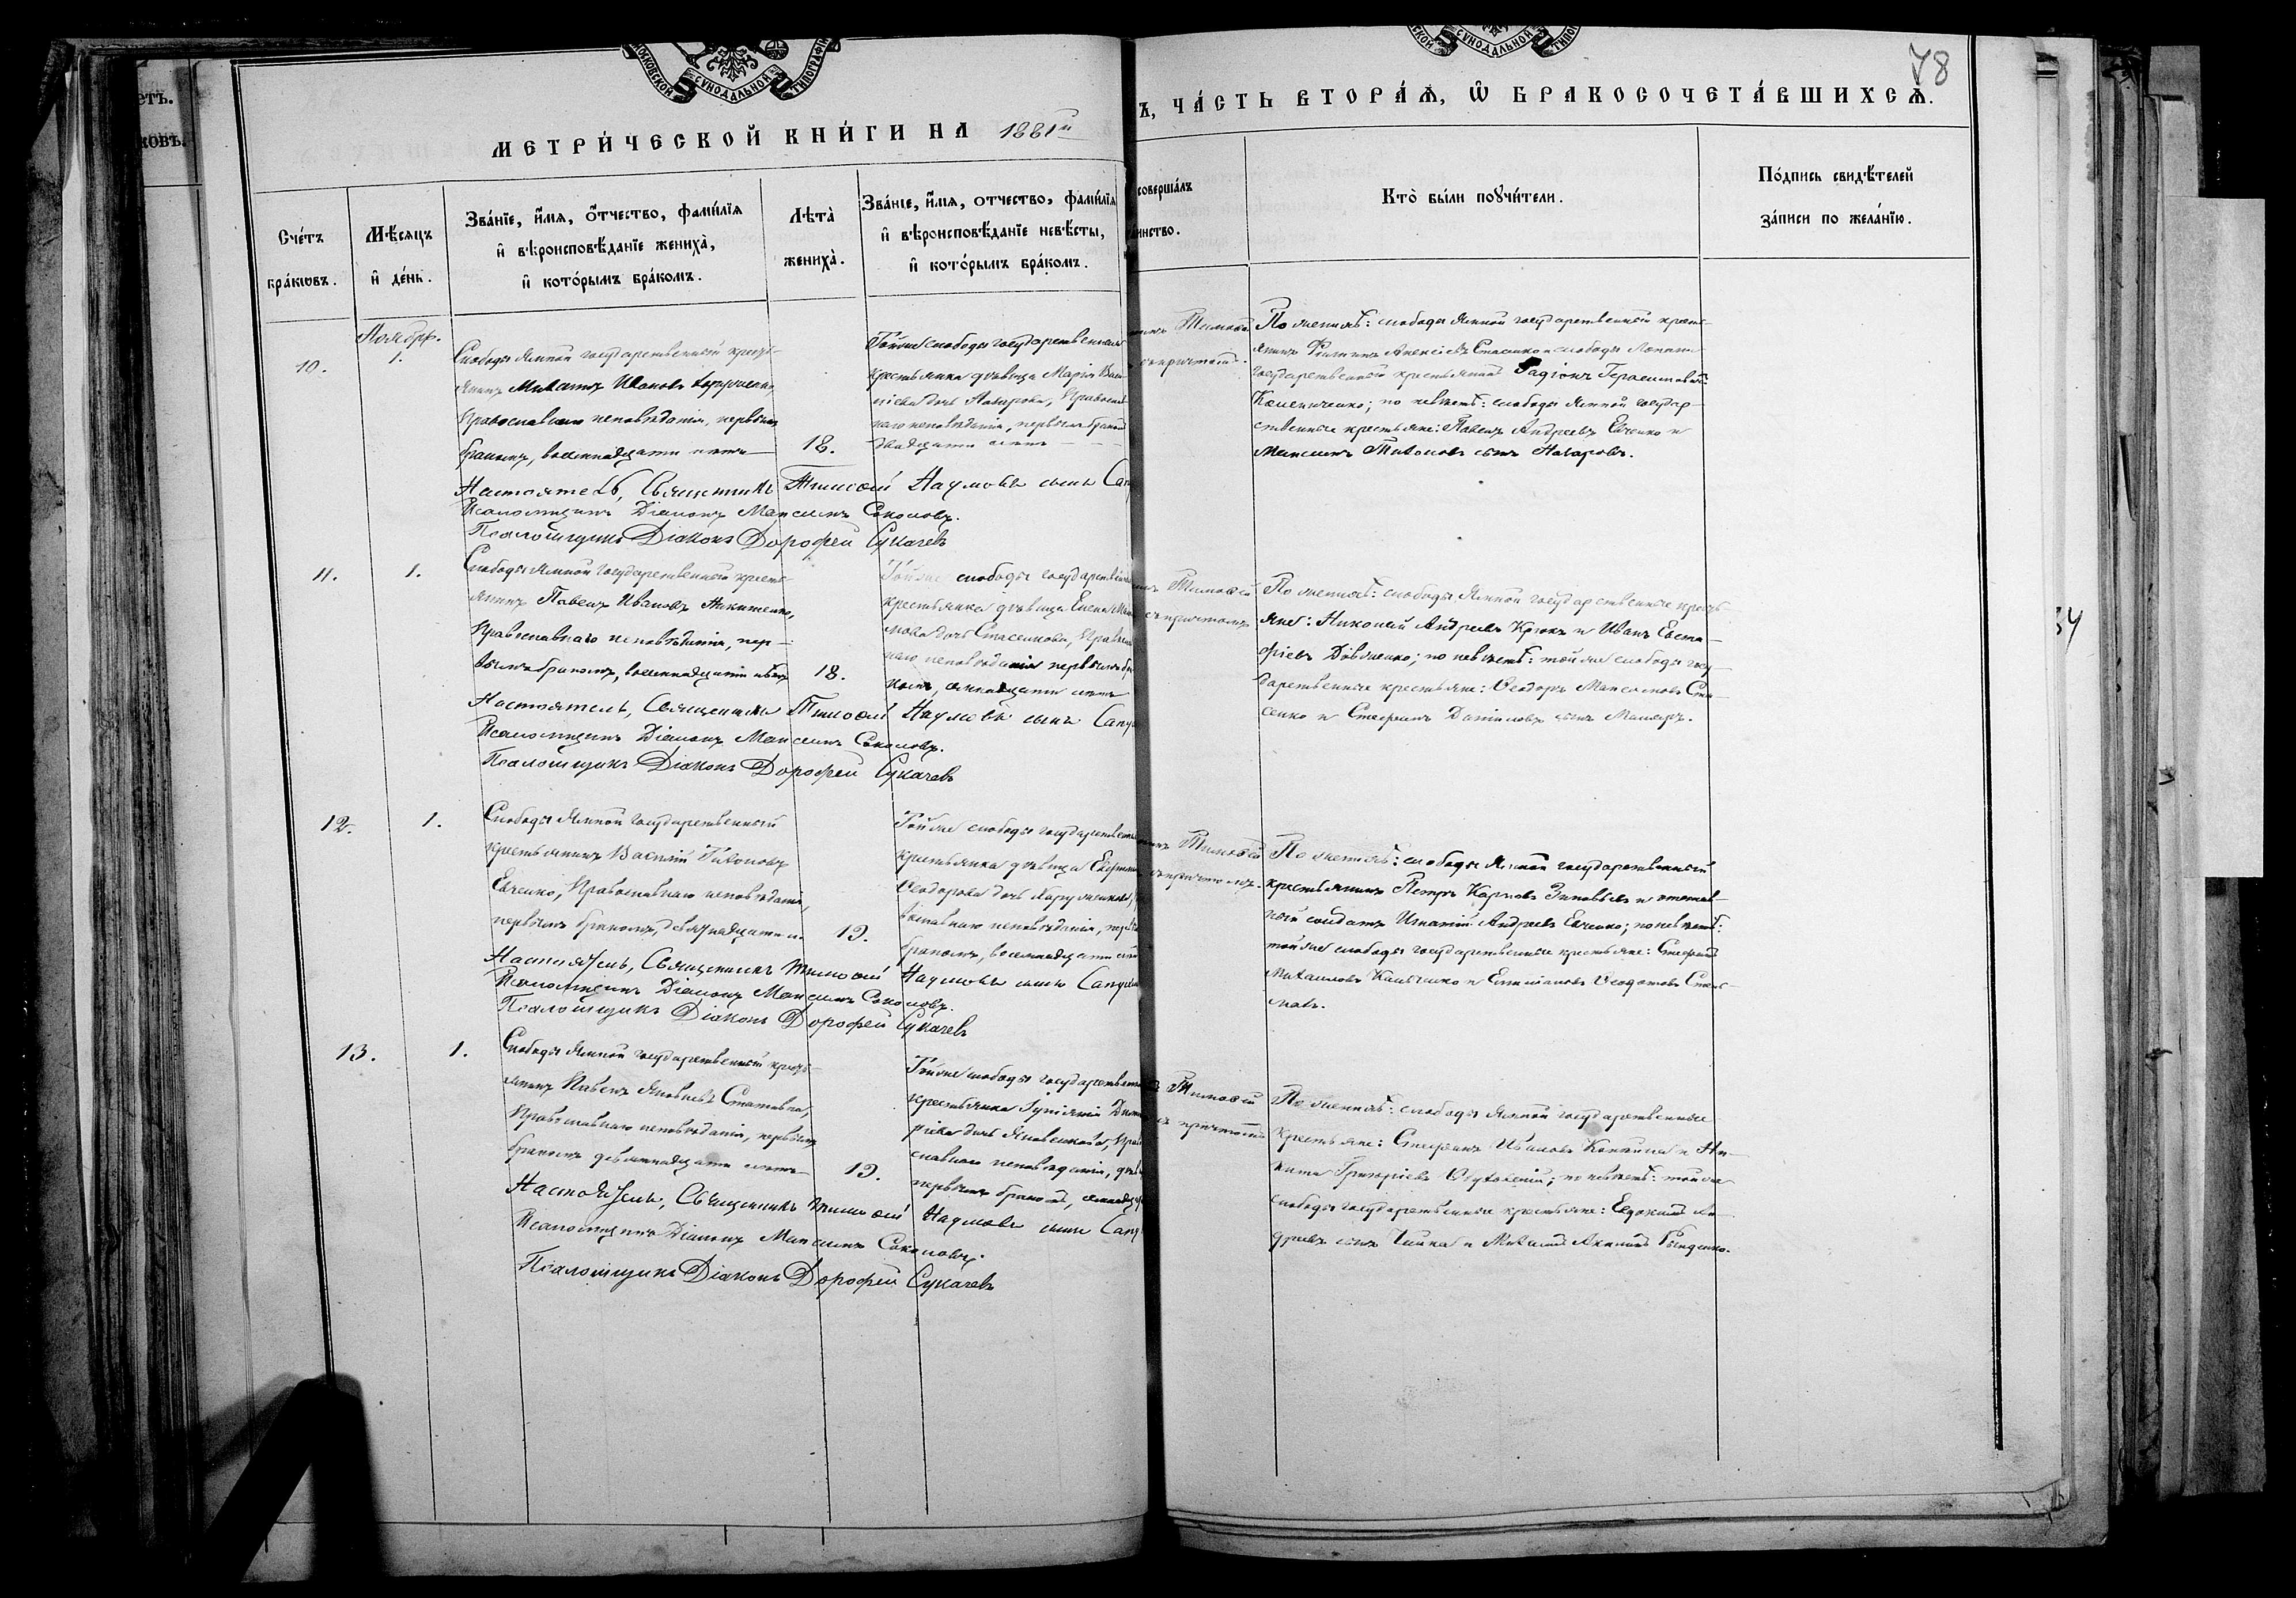 МОСКОВСКОЙ СѴНОДАЛЬНОЙ ТИПОГРАФІИ
СѴНОДАЛЬНОЙ
78
МЕТРИ́ЧЕСКОЙ КНИ́ГИ НА 1881й
Ъ, ЧА́СТЬ ВТОРА́Ѧ, Ѡ БРАКОСОЧЕТА́ВШИХСѦ.
Сче́тъ
бра́кѡвъ.
Мѣ́сяцъ
и де́нь.
Зва́нїе, и҆́мя, о҆́тчество, фами́лїя
и҆ вѣроисповѣ́данїе жениха̀,
и҆ кото́рымъ бра́комъ.
Лѣта̀
жениха̀.
Зва́нїе, и҆́мя, отчество, фами́лїя
и҆ вѣроисповѣ́данїе невѣ́сты,
и҆ кото́рымъ бра́комъ.
совершалъ
Кто̀ бы́ли поꙋчи́тели.
По́дпись свидѣ́телей
за́писи по жела́нїю.
10.
Ноября.
1.
Слободы Ямной государственный кресть-
янинъ Михаилъ Ивановъ
Православнаго исповѣданія, первымъ
бракомъ, восемнадцати лѣтъ
18.
Тойже слободы государственная
крестьянка дѣвица Марія Васи-
ліева дочь Назарова, Православ
наго исповѣданія, первымъ бракомъ
двадцати лѣтъ
Тимоѳей
съ причтомъ.
По женихѣ: слободы Ямной государственный кресть-
янинъ Филиппъ Алексіевъ Стасенко и слободы
государственный крестьянинъ Радіонъ Герасимовъ
по невѣстѣ: слободы Ямной государ-
ственные крестьяне: Павелъ Андреевъ Евченко и
Максимъ Тихоновъ сынъ Назаровъ.
Настоятель, Священникъ Тимоѳей Наумовъ сынъ
Псаломщикъ Діаконъ Максимъ Соколовъ.
Псаломщикъ Діаконъ Дорофей Сукачевъ
11.
1.
Слободы Ямной государственный кресть-
янинъ Павелъ Ивановъ Никитенко,
Православнаго исповѣданія, пер-
вымъ бракомъ, восемнадцати лѣтъ
18.
Тойже слободы государствен
крестьянка дѣвица Елена
дочь Стасенкова, Правосла
наго исповѣданія первымъ бра
комъ, лѣтъ
Тимоѳей
съ причтомъ
По женихѣ: слободы Ямной государственные кресть-
яне: Николай Андреевъ Крюкъ и Иванъ Евста-
фіевъ по невѣстѣ: тойже слободы госу-
дарственные крестьяне: Ѳеодоръ Максимовъ Ста-
сенко и Стефанъ Даниловъ сынъ
Настоятель, Священникъ Тимоѳей Наумовъ сынъ
Псаломщикъ Діаконъ Максимъ Соколовъ.
Псаломщикъ Діаконъ Дорофей Сукачевъ
12.
1.
Слободы Ямной государственный
крестьянинъ Василій Тихоновъ
Евченко, Православнаго исповѣданія,
первымъ бракомъ, девятнадцати л.
19.
Тойже слободы государствен
крестьянка дѣвица
Ѳеодорова дочь
вославнаго исповѣданія, первы
бракомъ, восемнадцати
Тимоѳей
съ причтомъ.
По женихѣ: слободы Ямной государственный
крестьянинъ Петръ Карповъ Зиновьевъ и отстав-
ный солдатъ Игнатій Андреевъ Евченко; по невѣстѣ:
тойже слободы государственные крестьяне: Стефанъ
Михаиловъ и Емиліанъ
Настоятель, Священникъ Тимоѳей Наумовъ сынъ
Псаломщикъ Діаконъ Максимъ Соколовъ.
Псаломщикъ Діаконъ Дорофей Сукачевъ
13.
1.
Слободы Ямной государственный кресть-
янинъ Павелъ Яковлевъ
Православнаго исповѣданія, первымъ
бракомъ девятнадцати лѣтъ
19.
Тойже слободы государствен
крестьянка Іуліанія Дими
ріева дочь Яковенкова, Право
славнаго исповѣданія,
первымъ бракомъ,
Тимоѳей
съ причтомъ
По женихѣ: слободы Ямной государственные
крестьяне: Стефанъ Ивановъ и Ни-
кита Григоріевъ по невѣстѣ: тойже
слободы государственные крестьяне: Евдокимъ Ан-
дреевъ сынъ и Михаилъ
Настоятель, Священникъ Тимоѳей Наумовъ сынъ
Псаломщикъ Діаконъ Максимъ Соколовъ.
Псаломщикъ Діаконъ Дорофей Сукачевъ